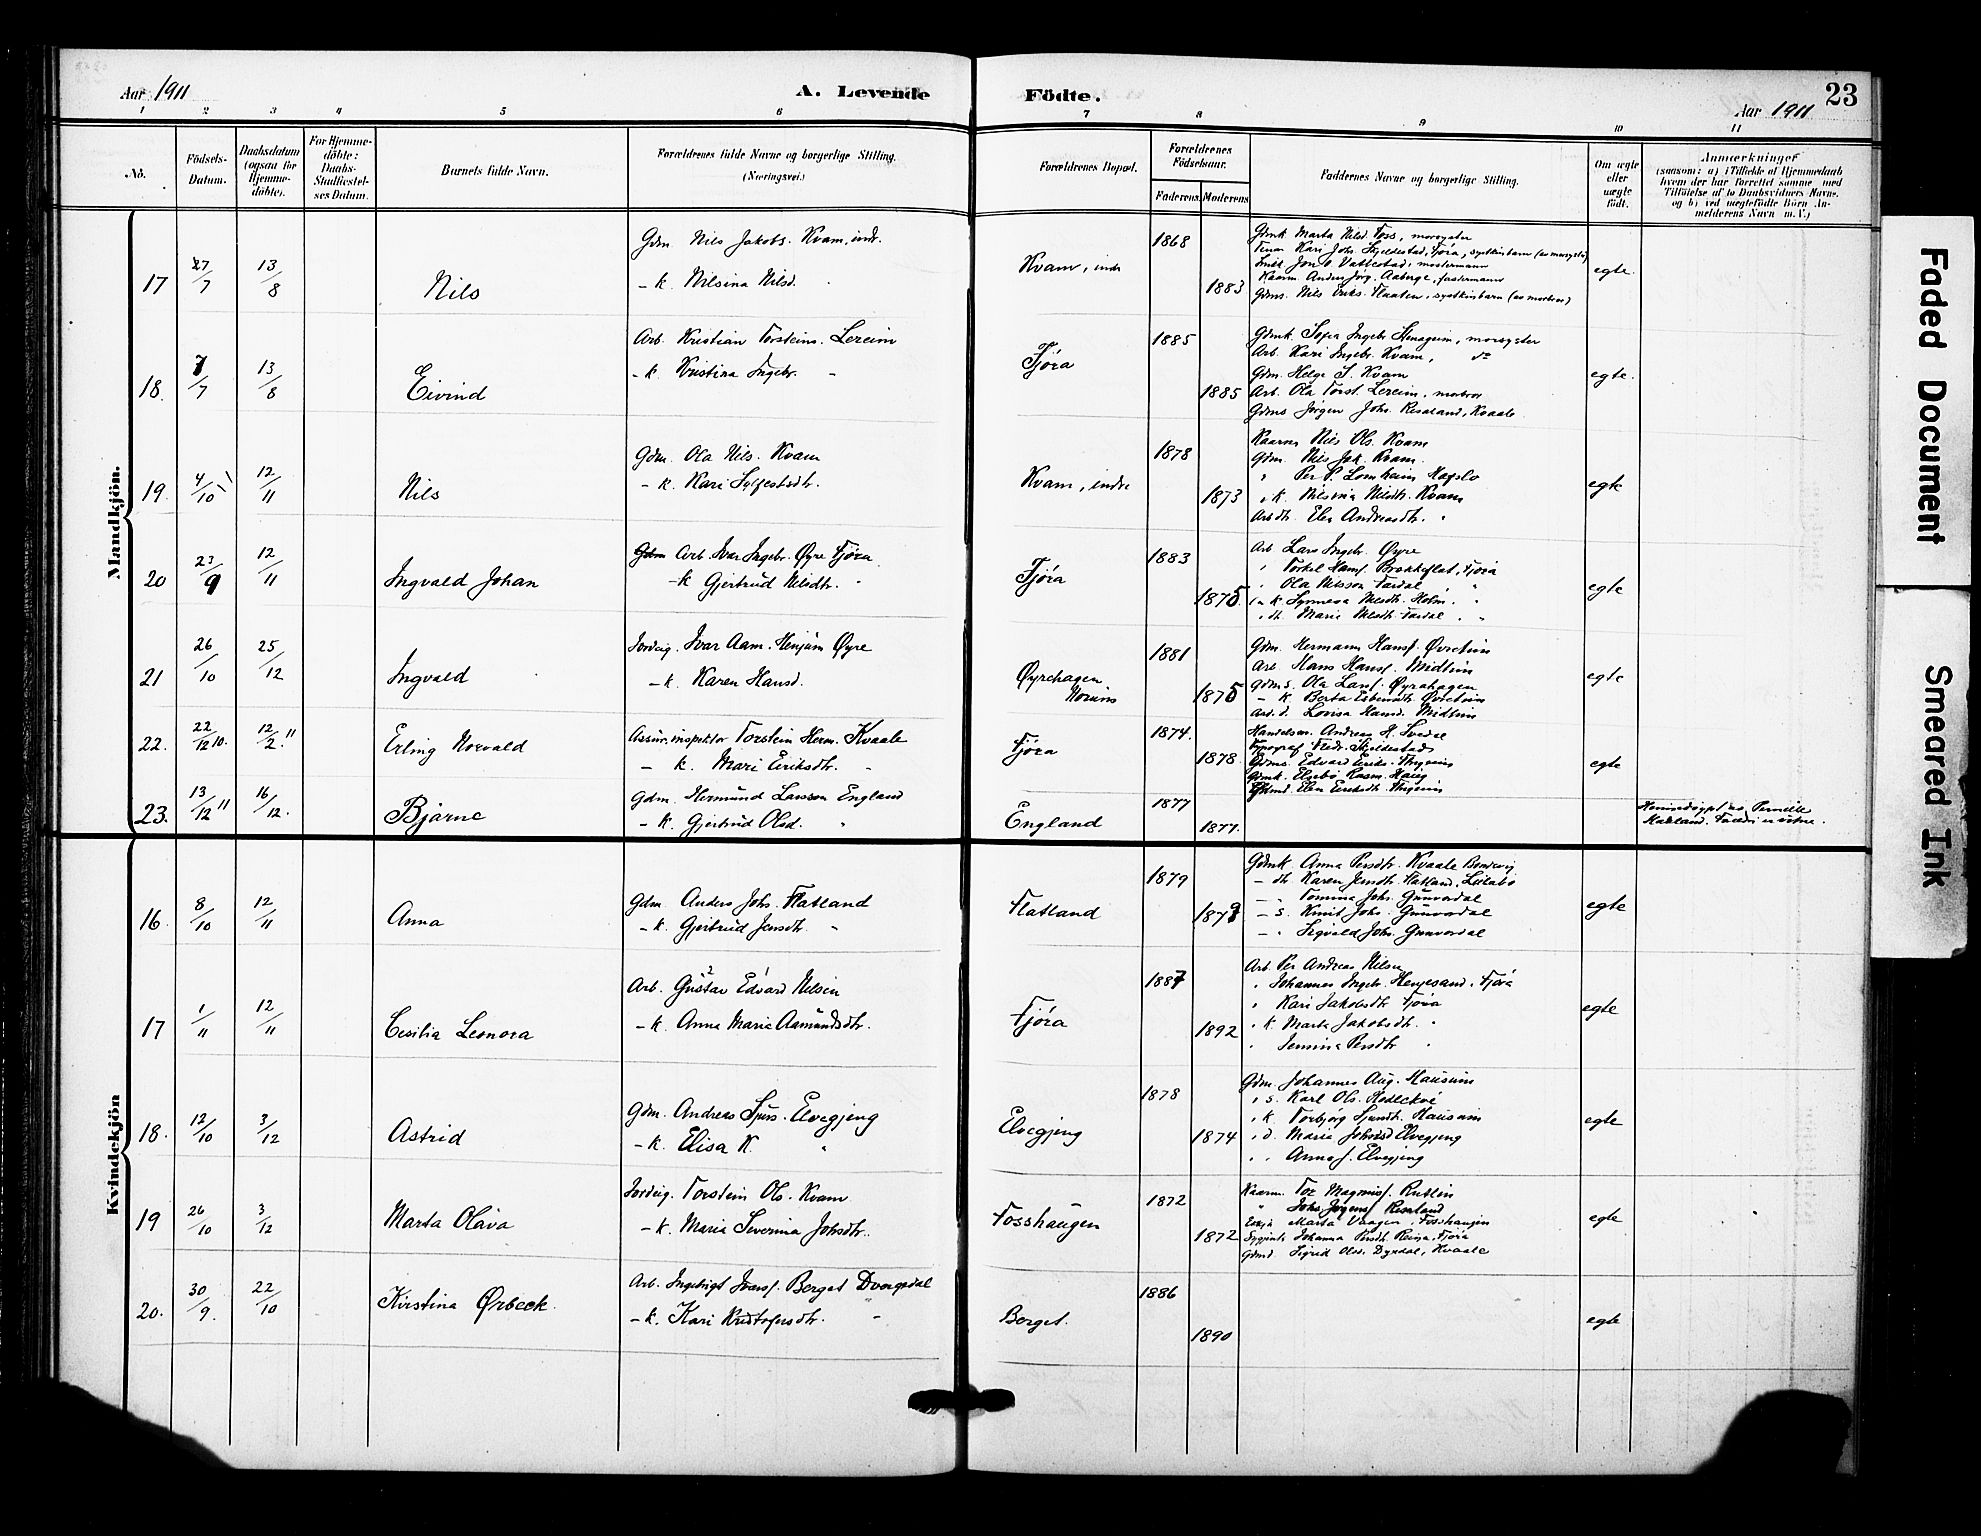 Aar 1911
A. Levende Födte.
Aar 1911
23
1 2 3 4 5 6 7 8 9 10 11
No.
Födsels-
Datum.
Daabsdatum
(ogsaa for
Hjemme-
döbte).
For Hjemme-
döbte:
Daabs-
Stadfæstel-
ses Datum.
Barnets fulde Navn.
Forældrenes fulde Navne og borgerlige Stilling.
(Næringsvei.)
Forældrenes Bopæl.
Forældrenes
Födselsaar.
Faderens Moderens
Faddernes Navne og borgerlige Stilling.
Om ægte
eller
uægte
født.
Anmærkninger
(saasom: a) i Tilfælde af Hjemmedaab
hvem der har forrettet samme med
Tilföielse af to Daabsvidners Navne.
og b) ved uægtefödte Börn An-
melderens Navn m.V.)
Mandkjön.
17 27/7 13/8 Nils
Gdm. Nils Jakobs. Kvam, indr.
- k. Nilsina Nilsd.
Kvam, indr 1868 1883
Gdmk Marta Nilsd. Foss, morsyster
Kari Johs. Skjeldestad, Fjöra, systkinbarn
Jon Vattestad, mostermann
Kaarm. Anders Jörg. Aaberge, fastermann
Gdms. Nils Eriks. Flaaten, systkinbarn (av morbror)
egte.
18. 7/7 13/8 Eivind
Arb. Kristian Torsteins. Lereim
- k. Kristina Ingebr. -
Fjöra 1885 1885
Gdmk. Ingebr. morsyster
Arb. Kari Ingebr. Kvam, do
Gdm. Helge S. Kvam
Arb. Ola Torst. Lereim, morbror
Gdms Jörgen Johs. Resaland, Kvaale
egte.
19. 4/10 12/11 Nils
Gdm. Ola Nils. Kvam
- k. Kari Sylfestsdtr.
Kvam, indre 1878 1873
Kaarm Nils Ols. Kvam
Gdm. Nils Jak. Kvam.
" Per P. Lomheim Hafslo
" k. Nilsina Nilsdtr. Kvam
Arb dtr. Elen Andreasdtr. "
egte
20 23/9 12/11 Ingvald Johan
Gdm Arb. Ivar Ingebr. Øyre Fjöra
- k Gjertrud Nilsdtr. "
Fjöra 1883 1875.
Arb. Lars Ingebr. Øyre
" Torkel Hans. Brekkeflat, Fjöra
" Ola Nilsson Tardal "
" k. Synneva Nilsdtr. Holm. "
" dtr. Marie Nilsdtr. Tardal. "
egte
21 26/10 25/12 Ingvald
Jordeig. Ivar Aam. Henjum Øyre
- k. Karen Hansd.
Øyrehagen
Norum
1881 1875
Gdm. Hermann Hans. Øvretun
Arb. Hans Hans. Midtun
Gdms. Ola Lars. Øyrahagen
- k. Berta Esbensdtr. Øvretun
Arb. d. Lovisa Hansd. Midtun
egte
22. 22/12 10. 12/2. 11 Erling Norvald
Assur. inspektør Torstein Herm. Kvaale
- k. Mari Eiriksdtr. -
Fjöra 1874. 1878.
Handelsm. Andreas H. Svedal
Typograf Fredr. Skjeldestad
Gdms. Edvard Eriks.
Gdmk. Elisbö Rasm. Haug
Gdmd. Elen Eiriksdtr.
egte
23. 13/12 11 16/12. Bjarne
Gdm. Hermund Larsson England
- k. Gjertrud Olsd. "
England 1877 1877.
Hemedöypt av Pernille
Kvindekjön
16. 8/10 12/11 Anna
Gdm Anders Johs. Flatland
- k. Gjertrud Jensdtr. -
Flatland 1879 1879
Gdmk. Anna Persdtr. Kvaale
- dtr. Karen Jensdtr. Flatland,
- " Tomina Johs. Gunvordal
- s. Knut Johs. Gunvordal
- " Sigvald Johs. Gunvordal
egte
17 1/11 12/11 Cesilia Leonora
Arb. Gustav Edvard Nilsen
- k. Anna Marie Aamundsdtr.
Fjöra 1887 1892
Arb. Per Andreas Nilsen
" Johannes Ingebr. Henjesand, Fjöra
" Kari Jakobsdtr Fjöra
" k. Marta Jakobsdtr. "
" Jensina Persdtr "
egte
18. 12/10 3/12 Astrid
Gdm. Andreas Sjurs. Elvegjeng
- k. Elisa K. "
Elvegjeng 1878 1874
Gdm. Johannes Aug. Hausum
" s. Karl Ols. Kodlekve
" k. Torbjørg Sjursdtr. Hausum
" d. Maria Johnsd Elvegjeng
" " Anna J. Elvegjeng
egte
19 26/10 3/12 Marta Olava
Jordeig. Torstein Ols. Kvam
- k. Maria Severina Johsdtr.
Fosshaugen 1872 1872
Kaarm. Tor Magnus. Rutlin
" Johs. Jörgens. Resaland
Enkja Marta Vangen, Fosshaugen
Johanna Persdtr. Fjöra
Gdmd. Sigrid Olsd. Dyrdal, Kvaale
egte
20. 30/9. 22/10 Kirstina Ørbeck.
Arb. Ingebrigt Ivars. Berget Dvergsdal
- k. Kari Kristofersdtr. -
Berget. 1886 1890
egte
Faded Document
Smeared Ink